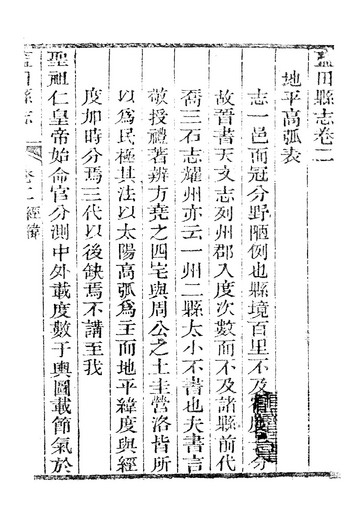 藍田縣志卷二
地平高弧表
志一邑而冠分野陋例也縣境百里不及度分
故晉書天文志列州郡入度次數而不及諸縣前代
喬三石志耀州亦云一州二縣太小不書也夫書言
敬授禮著辨方堯之四宅與周公之土圭營洛皆所
以爲民極其法以太陽高弧爲主而地平緯度與經
度加時分焉三代以後缺焉不講至我
聖祖仁皇帝始命官分測中外載度數于輿圖載節氣於
藍田縣志 卷二 經緯